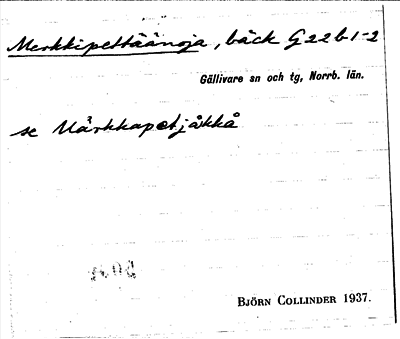 Merkkipettäänoja, bäck G22b1-2
Gällivare sn och tg, Norrb. län.
se Márkkapetjåkkå
BJÖRN COLLINDER 1937.